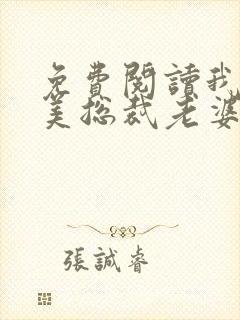 免費閱讀我
美總裁老婆
張誠睿